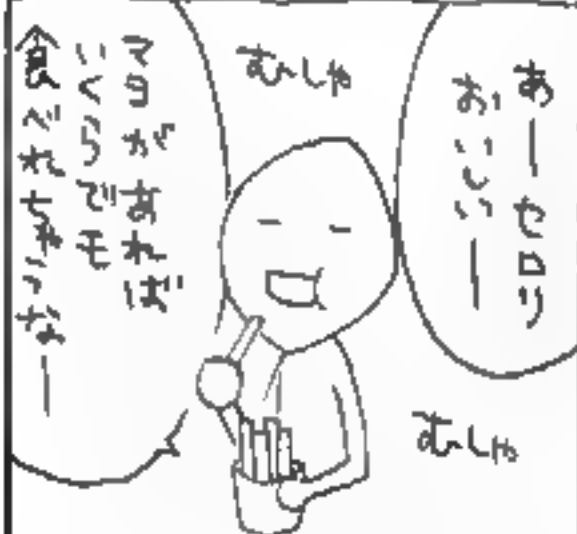 あーセロリ
おいしいー
むしゃ
マヨがあれば
いくらでモ
食べれちゃうなー
むしゃ